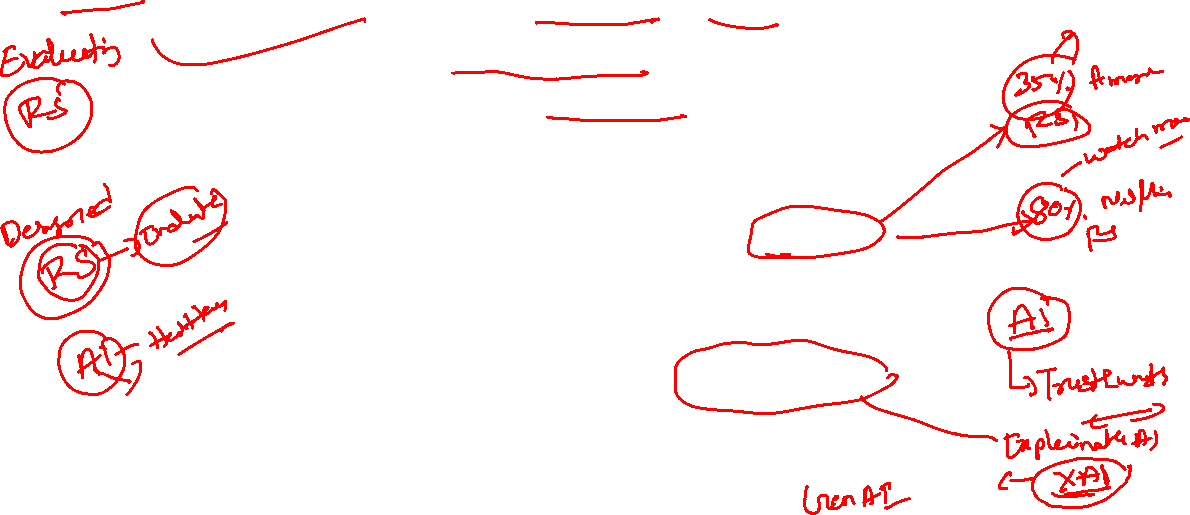 Evaluating
RS
Designed
RS
Evaluate
AI
Healthcare
35%
Amazon
RS
watch more
80%
Netflix
AI
Trustworthy
Explainable AI
XAI
Gen AI